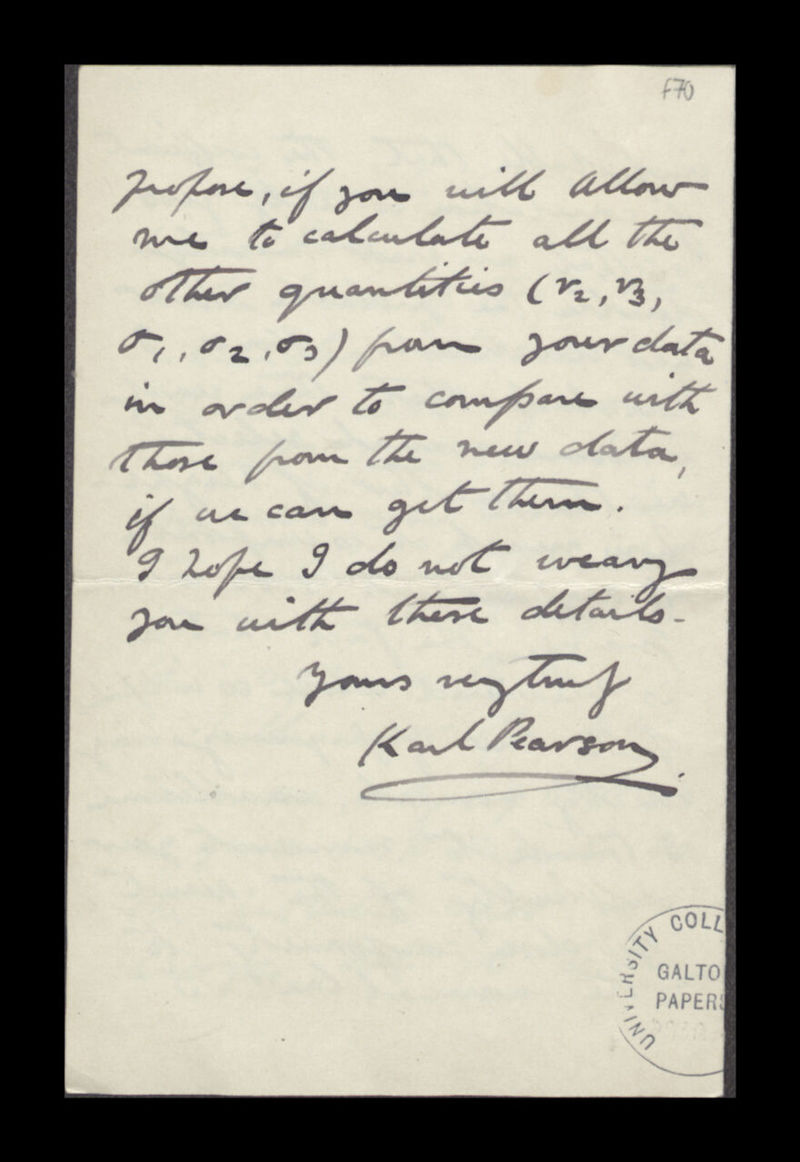 f70
propose, if you will allow
me to calculate all the
other quantities (r₂, r₃,
σ₁, σ₂, σ₃) from your data
in order to compare with
those from the new data,
if we can get them.
I hope I do not weary
you with these details.
Yours very truly
Karl Pearson.
UNIVERSITY COLL
GALTO
PAPERS